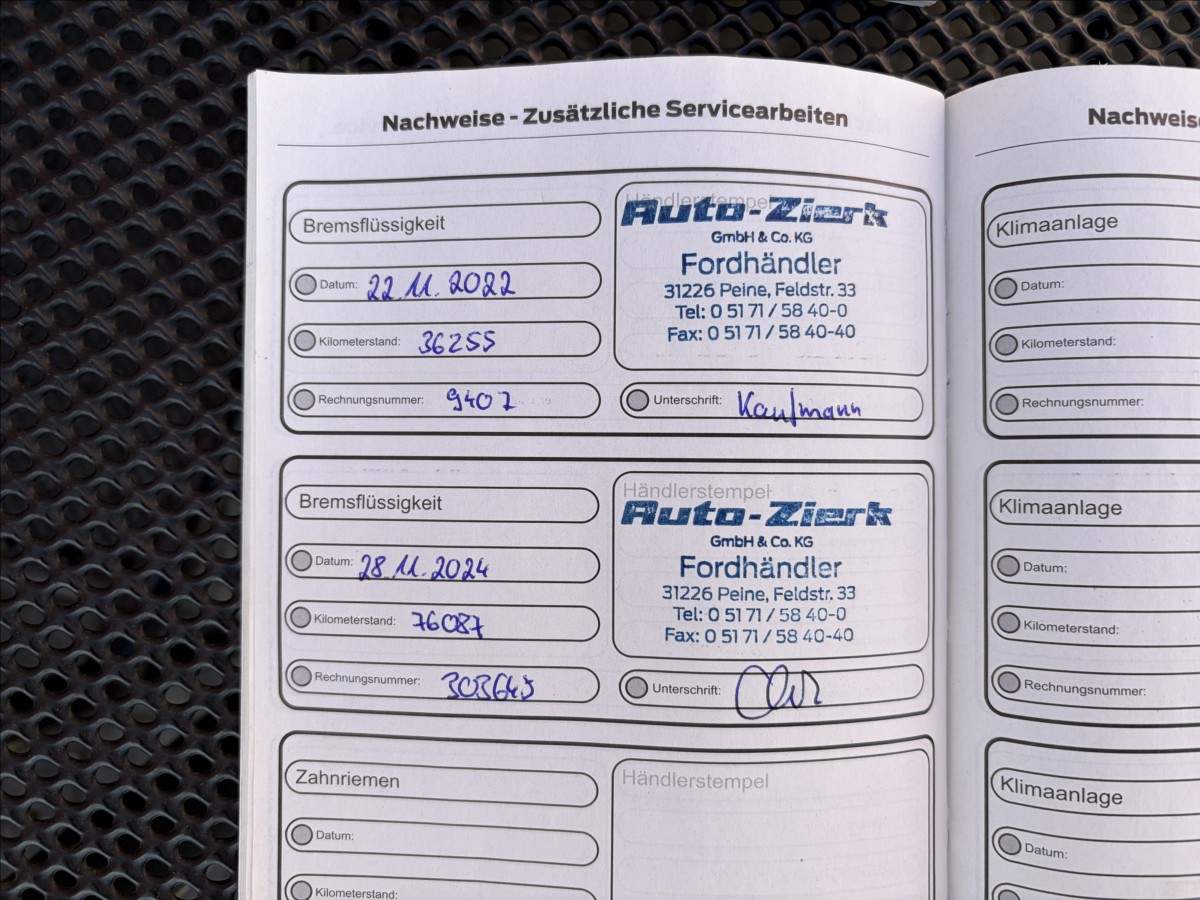 Nachweise - Zusätzliche Servicearbeiten
Bremsflüssigkeit
Datum: 22.11.2022
Kilometerstand: 36255
Rechnungsnummer: 9407
Händlerstempel
Auto-Zierk
GmbH & Co. KG
Fordhändler
31226 Peine, Feldstr. 33
Tel: 0 51 71 / 58 40-0
Fax: 0 51 71 / 58 40-40
Unterschrift: Kaufmann
Bremsflüssigkeit
Datum: 28.11.2024
Kilometerstand: 76087
Rechnungsnummer: 303645
Händlerstempel
Auto-Zierk
GmbH & Co. KG
Fordhändler
31226 Peine, Feldstr. 33
Tel: 0 51 71 / 58 40-0
Fax: 0 51 71 / 58 40-40
Unterschrift:
Zahnriemen
Datum:
Kilometerstand:
Händlerstempel
Nachweise
Klimaanlage
Datum:
Kilometerstand:
Rechnungsnummer:
Klimaanlage
Datum:
Kilometerstand:
Rechnungsnummer:
Klimaanlage
Datum: